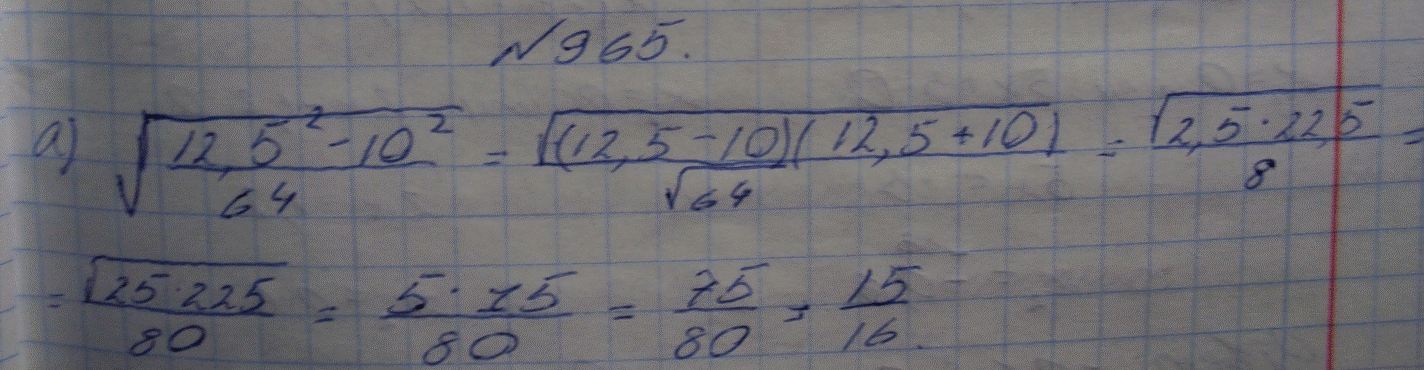 №965.
а) √((12,5² - 10²)/64) = √((12,5 - 10)(12,5 + 10))/√64 = √(2,5 · 22,5)/8 =
= √(25 · 225)/80 = (5 · 15)/80 = 75/80 = 15/16.